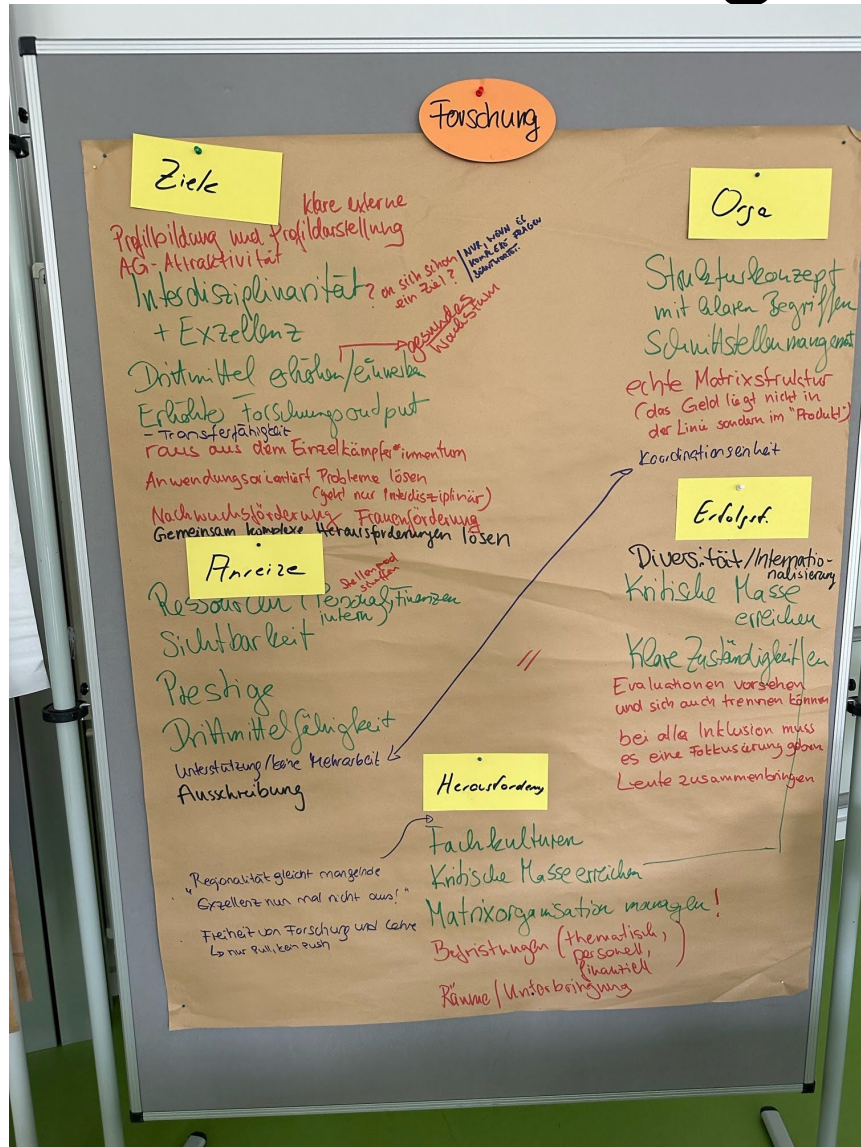 Forschung
Ziele
klare externe
Profilbildung und Profildarstellung
AG-Attraktivität
Interdisziplinarität
? an sich schon
ein Ziel?
NUR, WENN ES
KOMPLEXE FRAGEN
BEANTWORTET.
+ Exzellenz
gesundes
Wachstum
Drittmittel erhöhen/einwerben
Erhöhte Forschungsoutput
- Transferfähigkeit
raus aus dem Einzelkämpfer*innentum
Anwendungsorientiert Probleme lösen
(geht nur Interdisziplinär)
Nachwuchsförderung Frauenförderung
Gemeinsam komplexe Herausforderungen lösen
Anreize
Stellenpool
schaffen
Ressourcen (Personal, Finanzen
intern)
Sichtbarkeit
Prestige
Drittmittelfähigkeit
Unterstützung/keine Mehrarbeit
Ausschreibung
"Regionalität gleicht mangelnde
Exzellenz nun mal nicht aus!"
Freiheit von Forschung und Lehre
↳ nur Pull, kein Push
Orga
Strukturkonzept
mit klaren Begriffen
Schnittstellenmanagemt
echte Matrixstruktur
(das Geld liegt nicht in
der Linie sondern im "Produkt")
Koordinationseinheit
Erfolgsf.
Diversität/Internatio-
nalisierung
Kritische Masse
erreichen
Klare Zuständigkeit/en
Evaluationen vorsehen
und sich auch trennen können
bei aller Inklusion muss
es eine Fokkusierung geben
Leute zusammenbringen
Herausforderung
Fachkulturen
Kritische Masse erreichen
Matrixorganisation managen!
Befristungen (thematisch,
personell,
finanziell)
Räume/Unterbringung